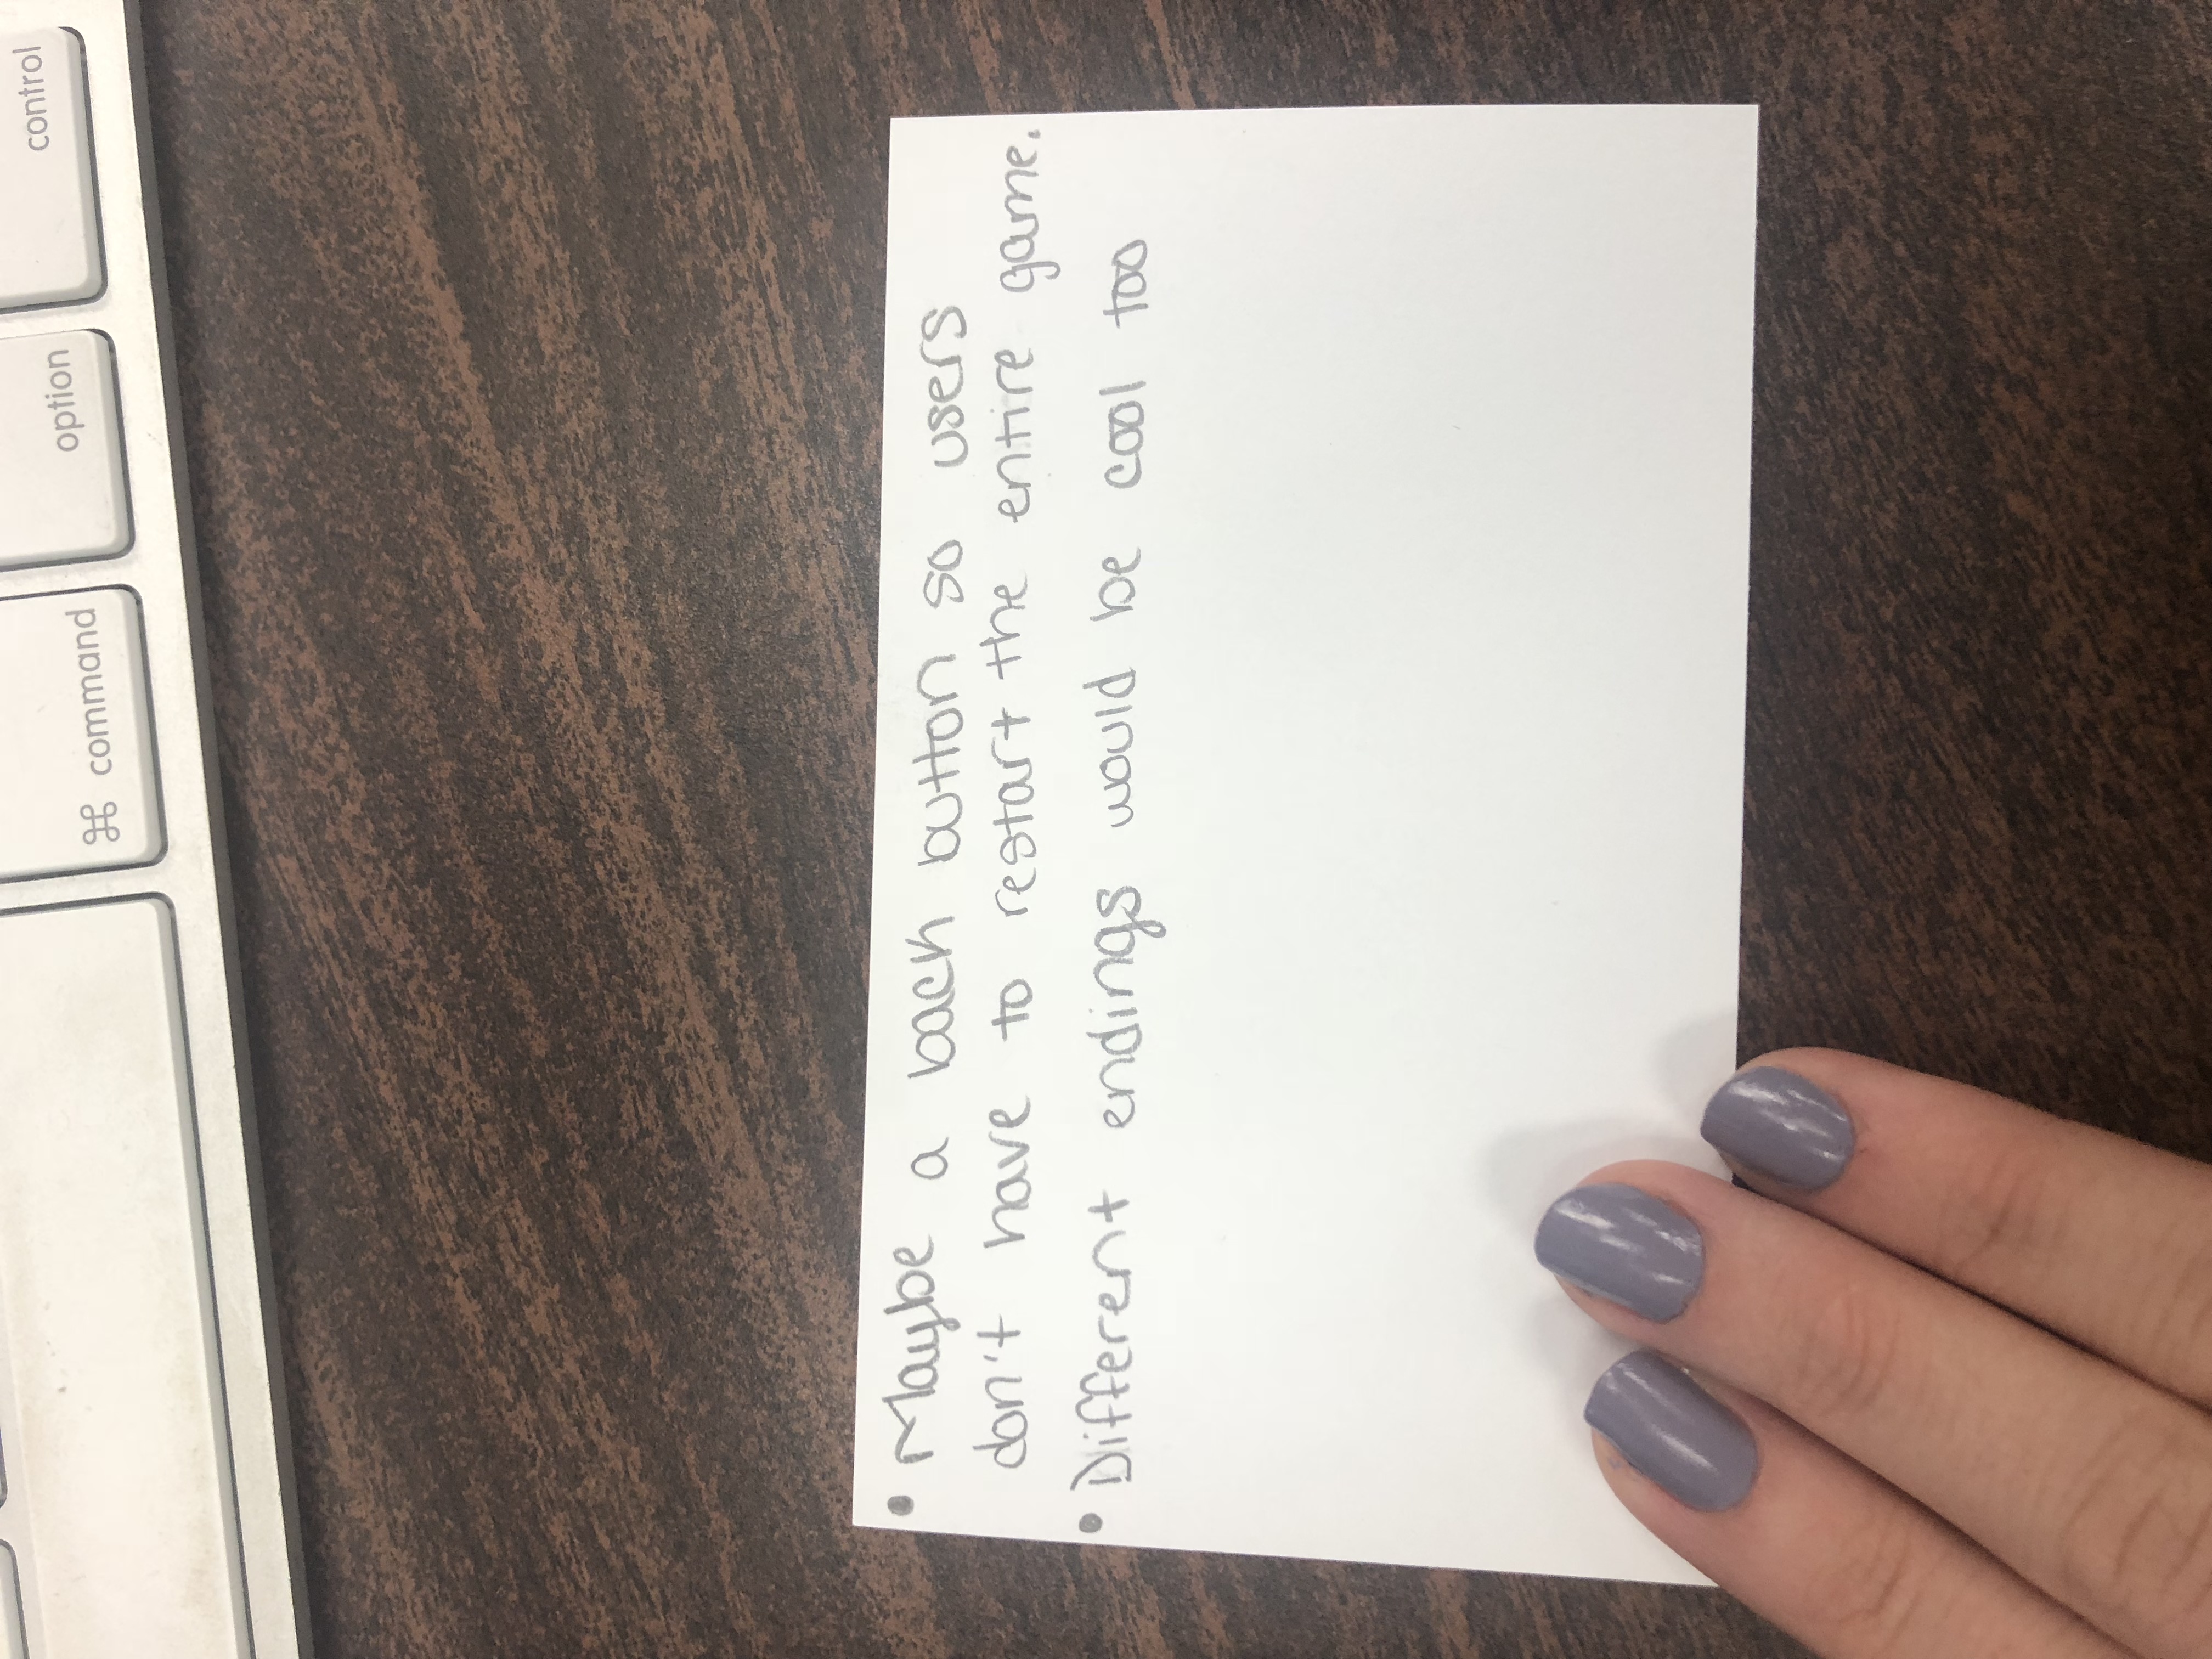 ⌘ command option control
• Maybe a back button so users
don't have to restart the entire game.
• Different endings would be cool too